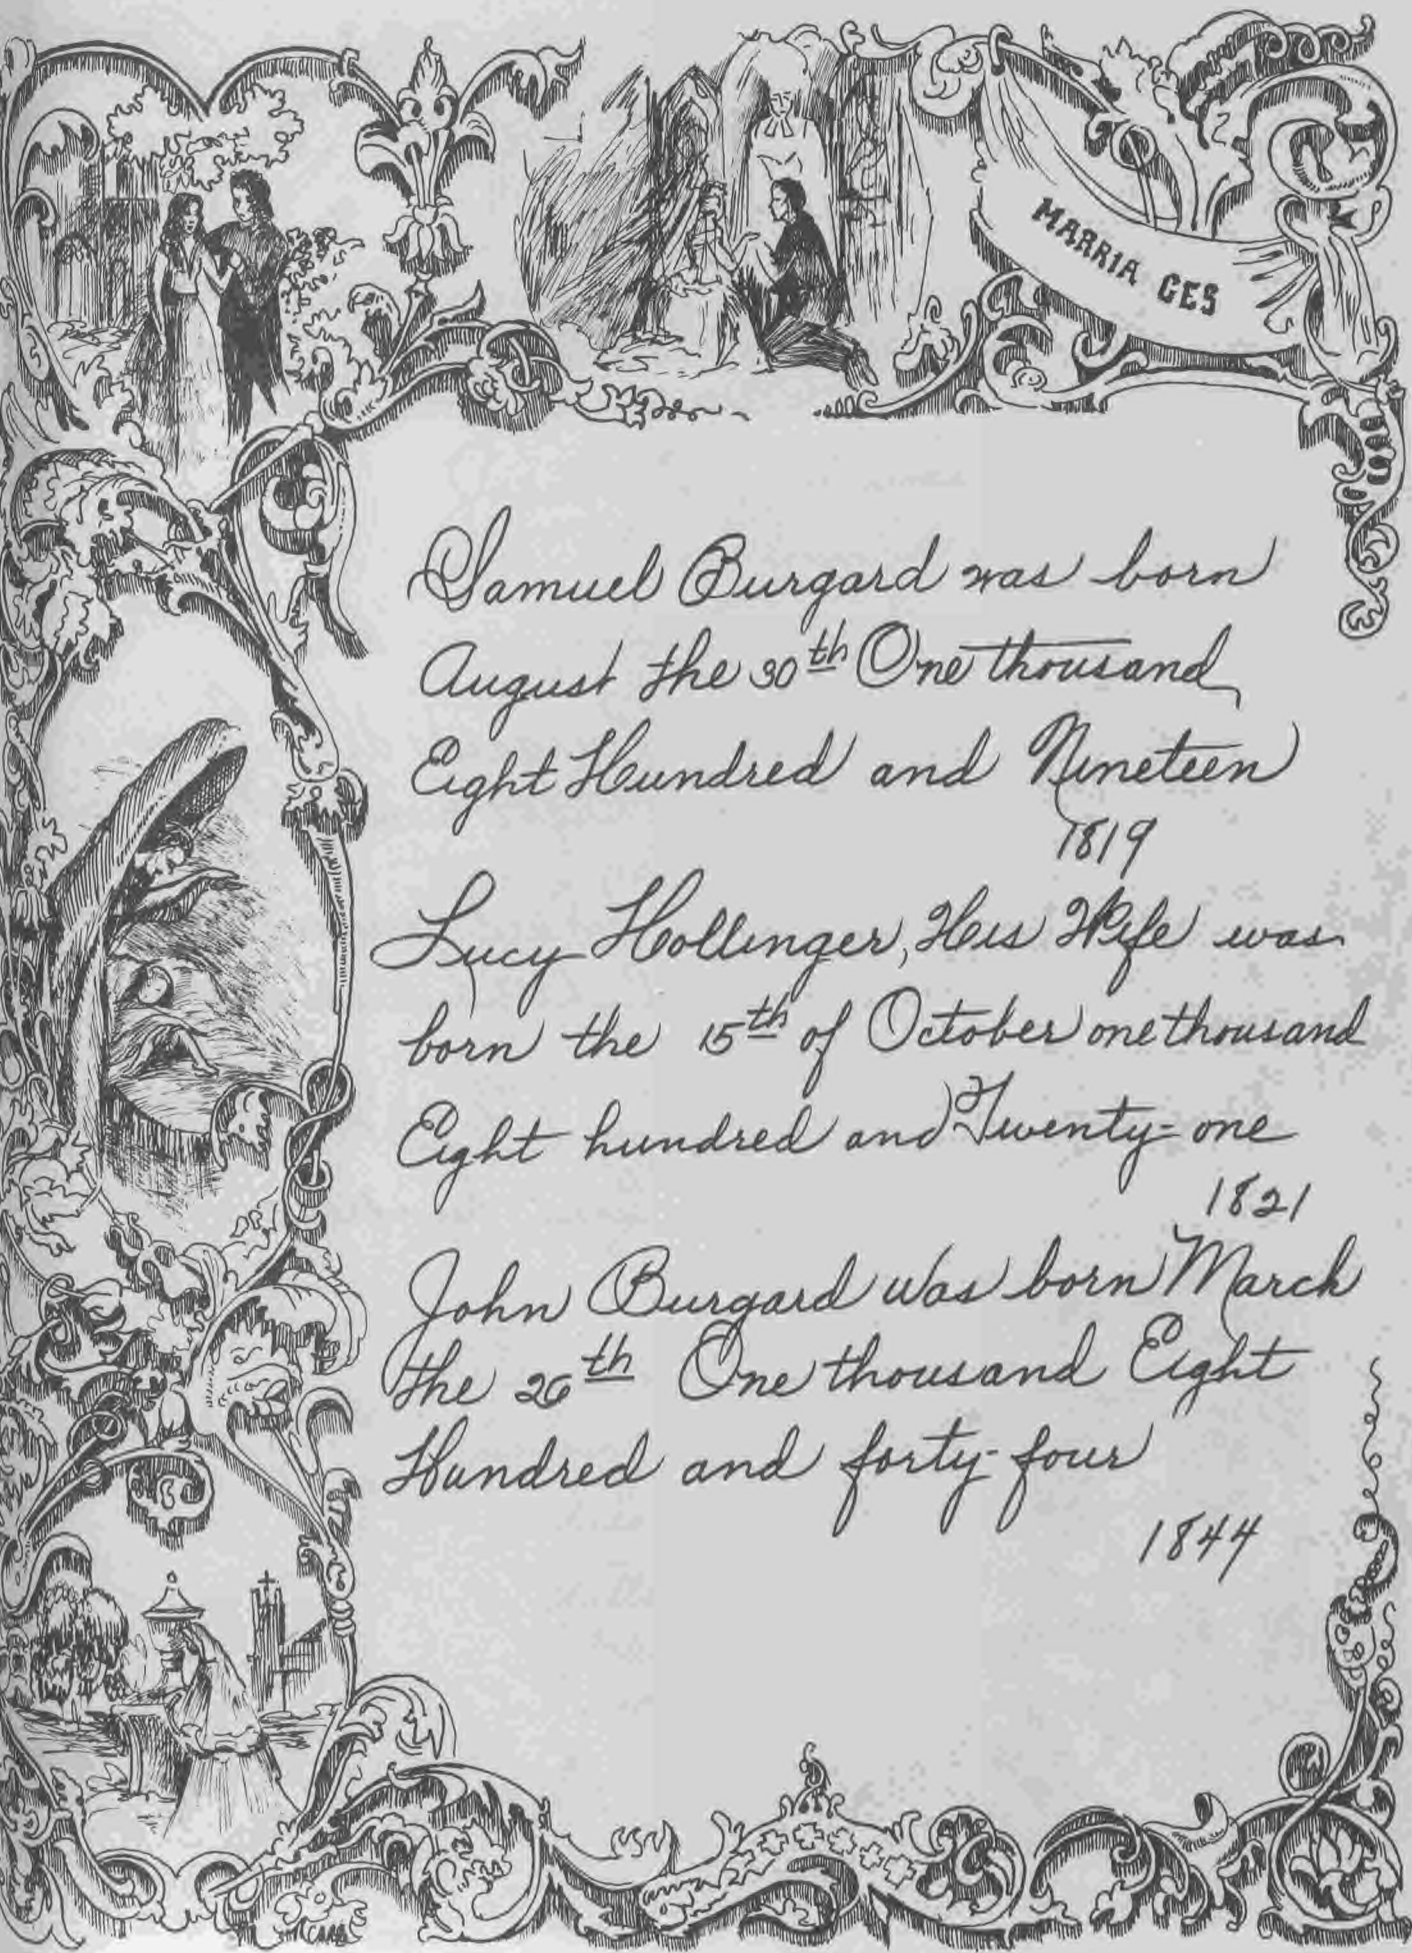 MARRIAGES
Samuel Burgard was born
August the 30th One thousand
Eight Hundred and Nineteen
1819
Lucy Hollinger, His Wife was
born the 15th of October one thousand
Eight hundred and Twenty-one
1821
John Burgard was born March
the 26th One thousand Eight
Hundred and forty-four
1844